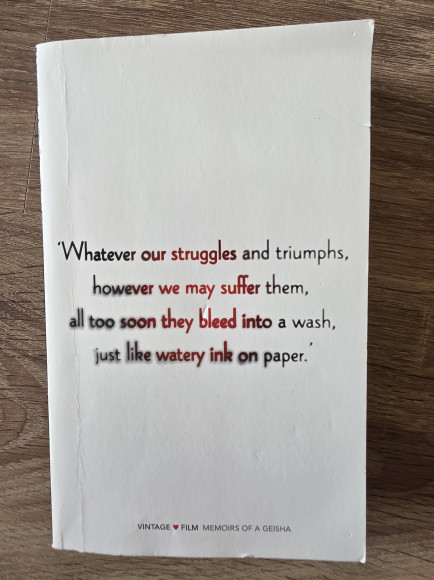 'Whatever our struggles and triumphs,
however we may suffer them,
all too soon they bleed into a wash,
just like watery ink on paper.'
VINTAGE ♥ FILM MEMOIRS OF A GEISHA